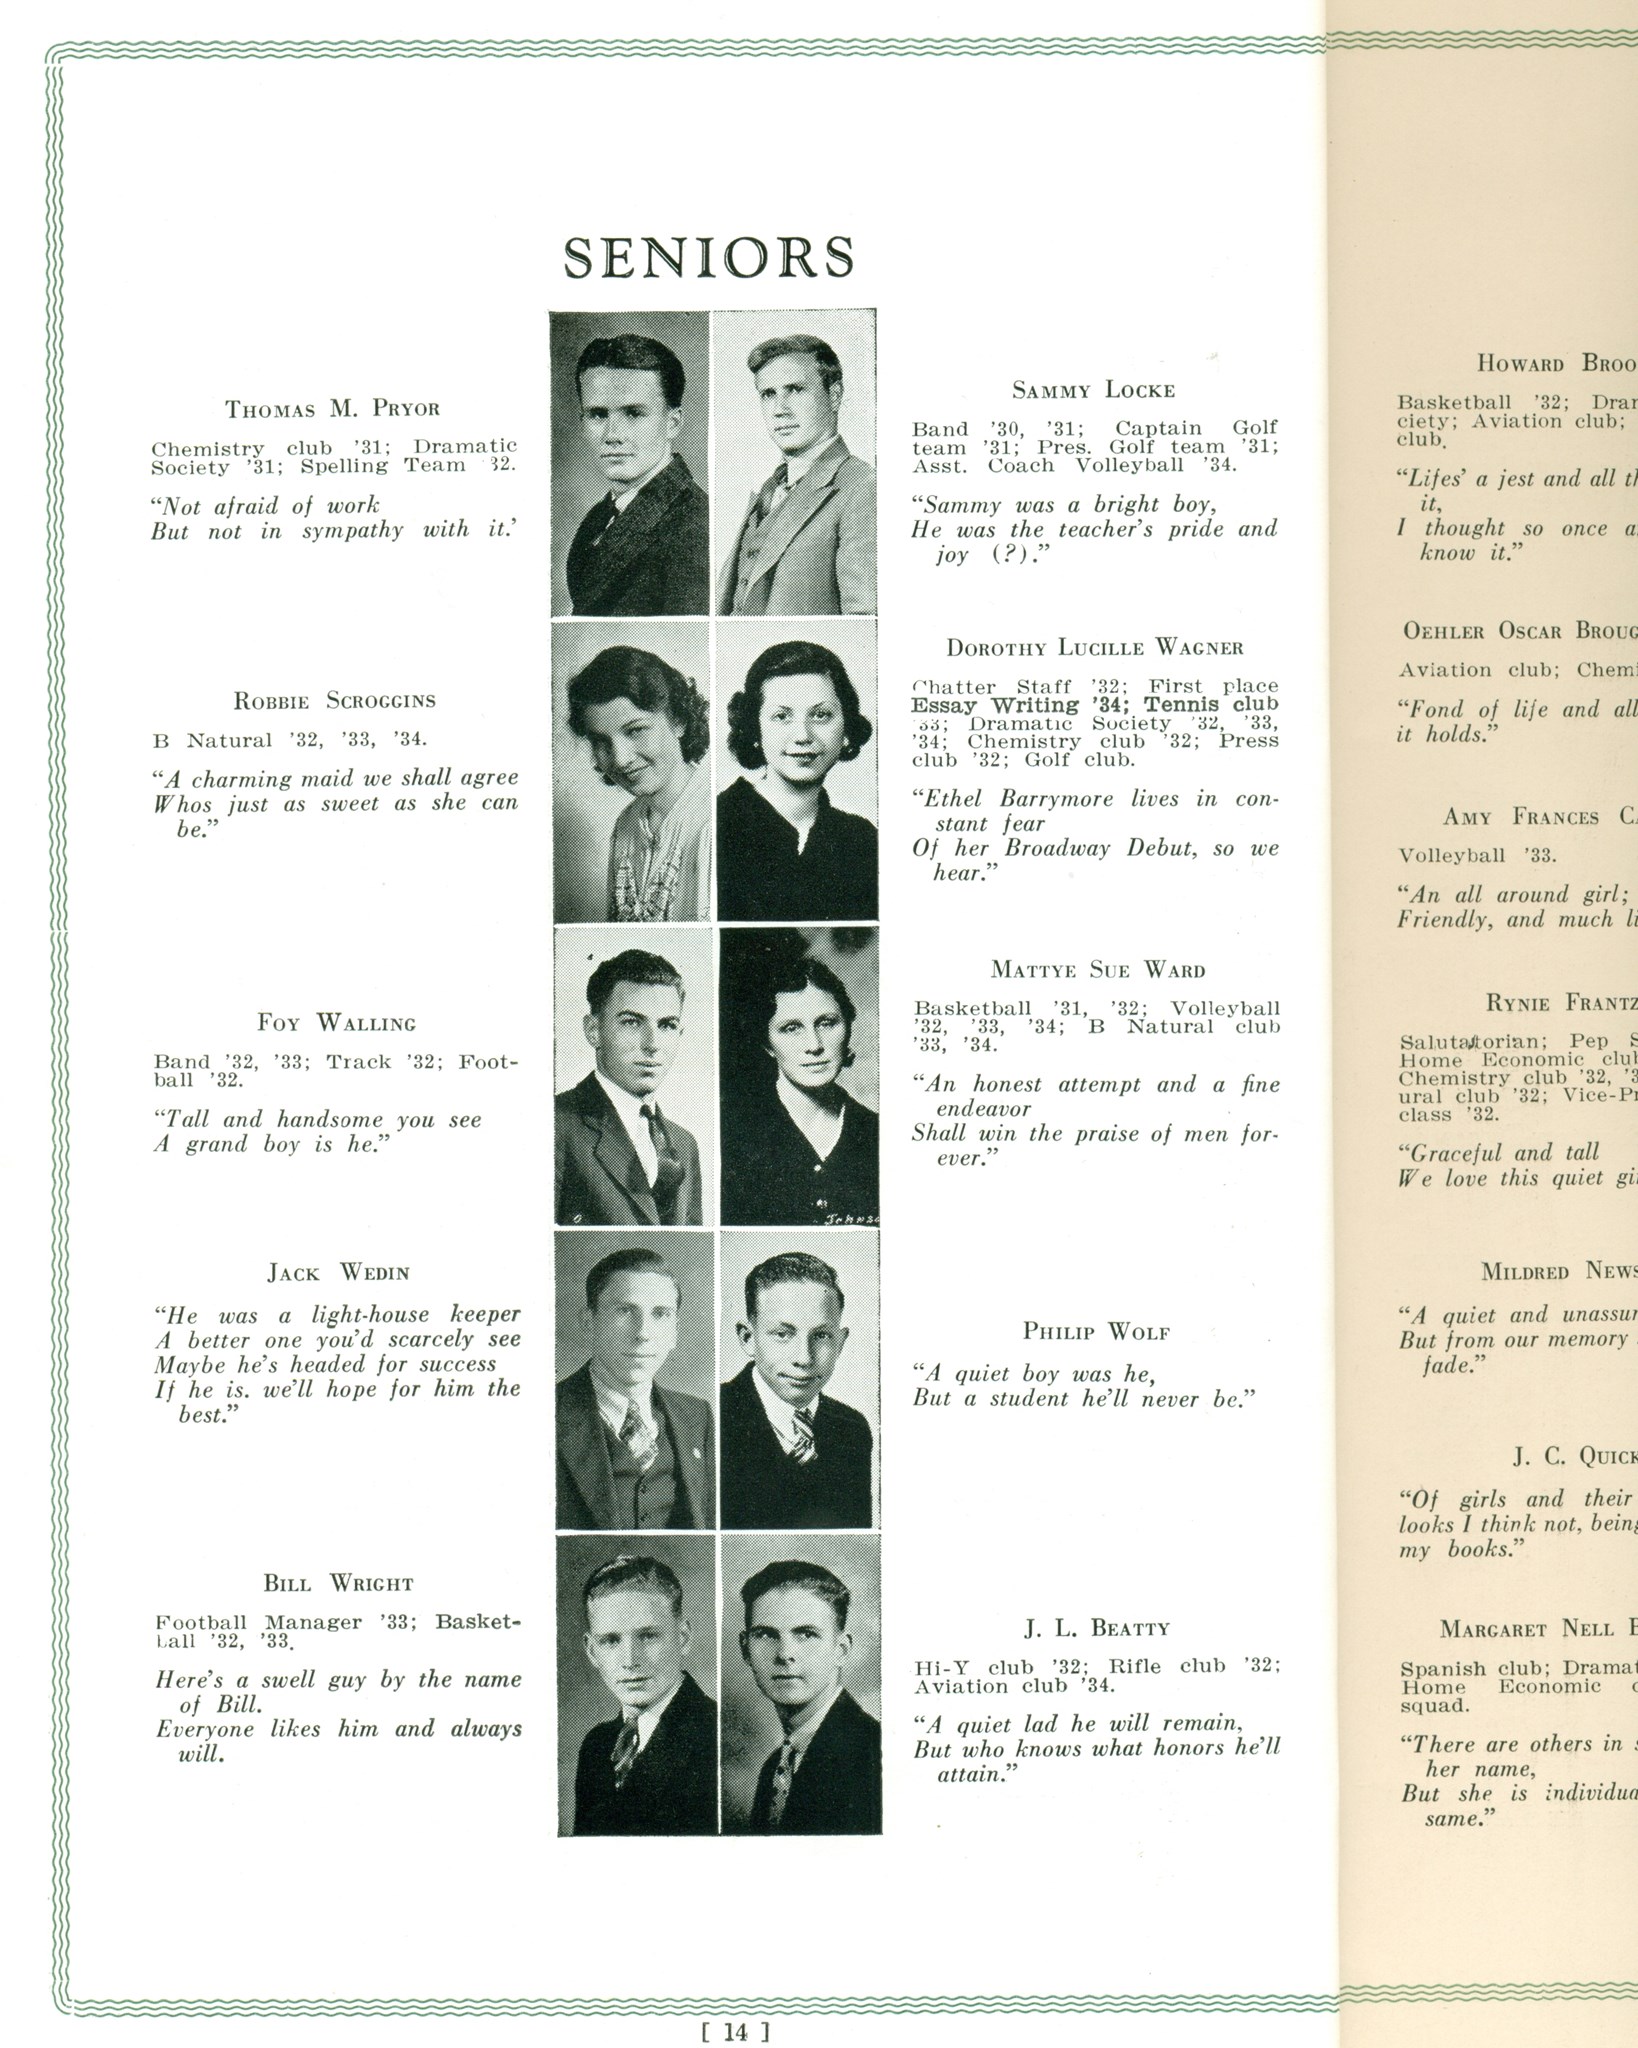 SENIORS
THOMAS M. PRYOR
Chemistry club '31; Dramatic
Society '31; Spelling Team '32.
"Not afraid of work
But not in sympathy with it.'
ROBBIE SCROGGINS
B Natural '32, '33, '34.
"A charming maid we shall agree
Whos just as sweet as she can
be."
FOY WALLING
Band '32, '33; Track '32; Foot-
ball '32.
"Tall and handsome you see
A grand boy is he."
JACK WEDIN
"He was a light-house keeper
A better one you'd scarcely see
Maybe he's headed for success
If he is. we'll hope for him the
best."
BILL WRIGHT
Football Manager '33; Basket-
ball '32, '33.
Here's a swell guy by the name
of Bill.
Everyone likes him and always
will.
SAMMY LOCKE
Band '30, '31; Captain Golf
team '31; Pres. Golf team '31;
Asst. Coach Volleyball '34.
"Sammy was a bright boy,
He was the teacher's pride and
joy (?)."
DOROTHY LUCILLE WAGNER
Chatter Staff '32; First place
Essay Writing '34; Tennis club
'33; Dramatic Society '32, '33,
'34; Chemistry club '32; Press
club '32; Golf club.
"Ethel Barrymore lives in con-
stant fear
Of her Broadway Debut, so we
hear."
MATTYE SUE WARD
Basketball '31, '32; Volleyball
'32, '33, '34; B Natural club
'33, '34.
"An honest attempt and a fine
endeavor
Shall win the praise of men for-
ever."
PHILIP WOLF
"A quiet boy was he,
But a student he'll never be."
J. L. BEATTY
Hi-Y club '32; Rifle club '32;
Aviation club '34.
"A quiet lad he will remain,
But who knows what honors he'll
attain."
[ 14 ]
HOWARD BROO
Basketball '32; Dra
ciety; Aviation club;
club.
"Lifes' a jest and all
it,
I thought so once
know it."
OEHLER OSCAR BROUG
Aviation club; Chemi
"Fond of life and all
it holds."
AMY FRANCES
Volleyball '33.
"An all around girl;
Friendly, and much
RYNIE FRANTZ
Salutatorian; Pep
Home Economic club
Chemistry club '32,
ural club '32; Vice-Pr
class '32.
"Graceful and tall
We love this quiet
MILDRED NEWS
"A quiet and unassu
But from our memory
fade."
J. C. QUICK
"Of girls and their
looks I think not, being
my books."
MARGARET NELL
Spanish club; Dramat
Home Economic
squad.
"There are others in
her name,
But she is individua
same."